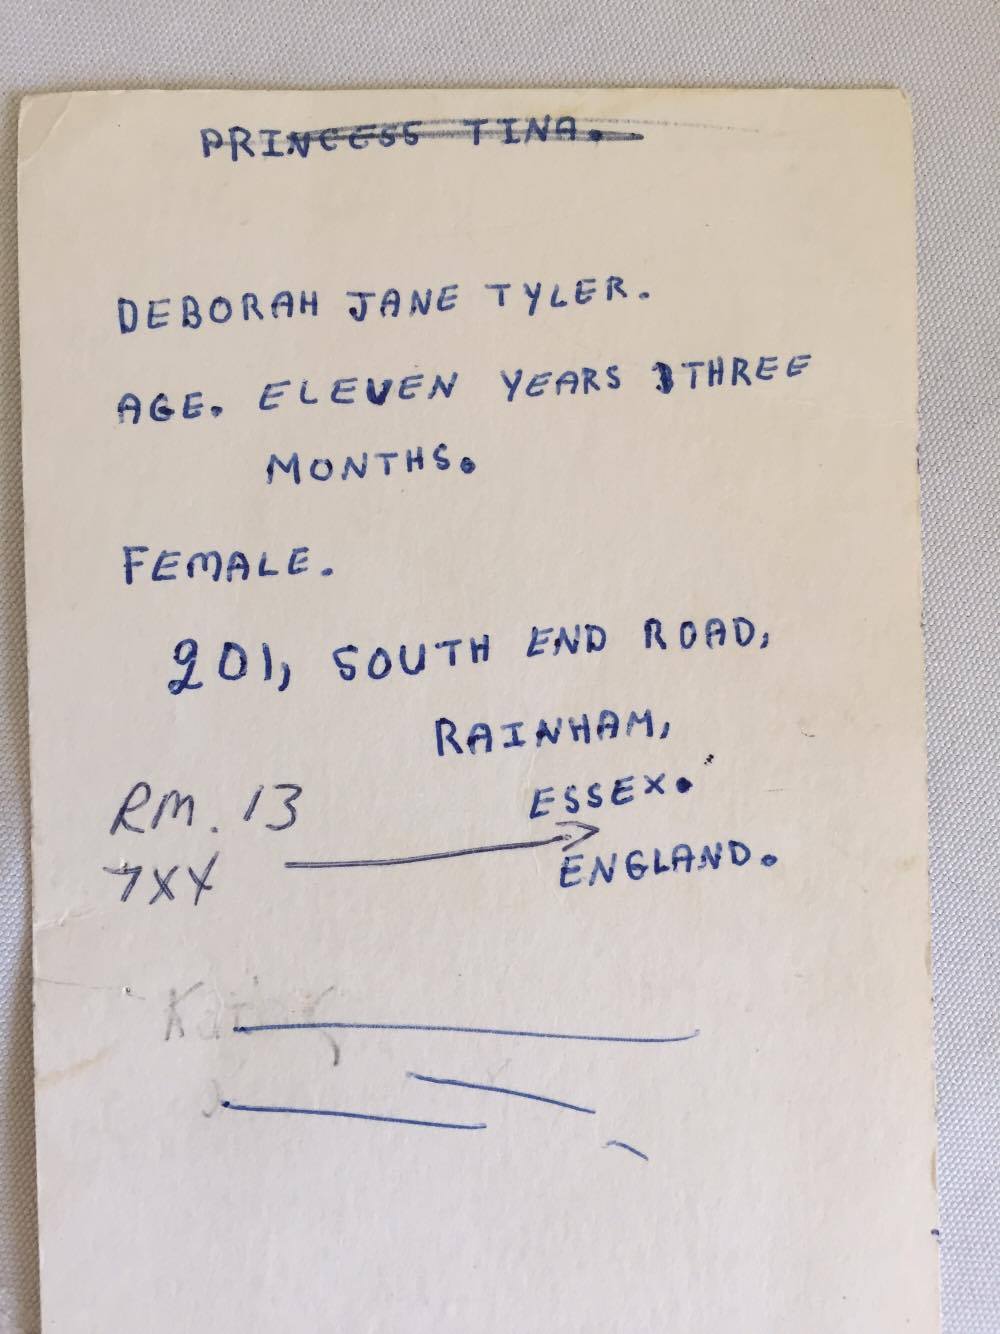 PRINCESS TINA.
DEBORAH JANE TYLER.
AGE. ELEVEN YEARS THREE
MONTHS.
FEMALE.
201, SOUTH END ROAD,
RAINHAM,
ESSEX.
RM. 13
7XX
ENGLAND.